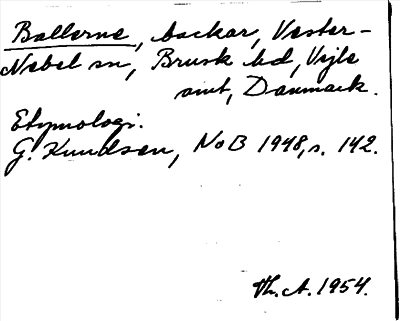 Ballerne, backar, Vester-
Nebel sn, Brusk hd, Vejle
amt, Danmark.
Etymologi.
G. Knudsen, NoB 1948, s. 142.
Th. A. 1954.